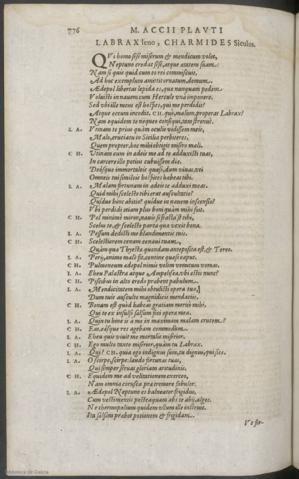 776 M. ACCII PLAVTI
LABRAX leno, CHARMIDES Siculus.
QVi homo sese miserum & mendicum volet,
Neptuno credat sese, atque ætatem suam.
Nam si quis quid cum eo rei commiscuit,
Ad hoc exemplum amittit ornatum domum.
Ædepol libertas lepida es, quæ nunquam pedem
Voluisti in nauem cum Hercule vna imponere.
Sed vbi ille meus est hospes, qui me perdidit?
Atque eccum incedit. CH. quò, malum, properas Labrax?
Nam equidem te nequeo consequi, tam strenuè.
LA. Vtinam te prius quàm oculis vidissem meis,
Malo cruciatu in Sicilia perbiteres,
Quem propter hoc mihi obtigit misero mali.
CH. Vtinam cum in ædeis me ad te adduxisti tuas,
In carcere illo potius cubuissem die.
Deosque immortaleis quæso, dum viuas, vti
Omneis tui simileis hospites habeas tibi.
LA. Malam fortunam in ædeis te adduxi meas.
Quid mihi scelesto tibi erat auscultatio?
Quidue hinc abitio? quidue in nauem inscensio?
Vbi perdidi etiam plus boni quàm mihi fuit.
CH. Pol minimè miror, nauis si fracta est tibi,
Scelus te, & scelestè parta quæ vexit bona.
LA. Pessum dedisti me blandimentis tuis.
CH. Scelestiorem cœnam cœnaui tuam,
Quàm quæ Thyestæ quondam anteposita est, & Tereo.
LA. Perij, animo malè fit, contine quæso caput.
CH. Pulmoneum ædepol nimis velim vomitum vomas.
LA. Eheu Palæstra atque Ampelisca vbi estis nunc?
CH. Piscibus in alto credo præbent pabulum.
LA. Mendicitatem mihi obtulisti opera tua,
Dum tuis ausculto magnidicis mendaciis.
CH. Bonam est quod habeas gratiam merito mihi,
Qui te ex insulso salsum feci opera mea.
LA. Quin tu hinc is à me in maximam malam crucem?
CH. Eas. easque res agebam commodùm.
LA. Eheu quis viuit me mortalis miserior.
CH. Ego multo tanto miserior, quàm tu Labrax.
LA. Qui? CH. quia ego indignus sum, tu dignus, qui sies.
LA. O scirpe, scirpe: laudo fortunas tuas,
Qui semper seruas gloriam aritudinis.
CH. Equidem me ad velitationem exerceo,
Nam omnia corusca præ tremore fabulor.
LA. Ædepol Neptune es balneator frigidus,
Cum vestimentis postquam abs te abij, algeo.
Ne thermopolium quidem vllum ille instruit.
Ita salsam præbet potionem & frigidam.